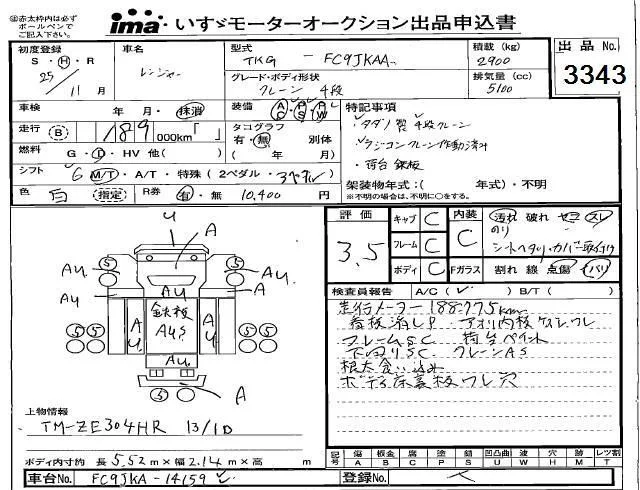 ◎赤太枠内は必ず
ボールペンで
ご記入下さい。
ima・いすゞモーターオークション出品申込書
初度登録
S・H・R
25年
11月
車名
レンジャー
型式
TKG - FC9JKAA
グレード・ボディ形状
クレーン 4段
積載(kg)
2900
排気量(cc)
5100
出品No.
3343
車検 年・月・抹消
装備 A C P S P W
走行 B 189 000km「 」
タコグラフ
有・無 別体
( 年 月)
燃料 G・D・HV 他( )
シフト 6 M/T・A/T・特殊(2ペダル・
色 白 指定 R券 有・無 10,400円
特記事項
・タダノ製 4段クレーン
・ラジコンクレーン作動済み
・荷台鉄板
架装物年式:( 年式)・不明
※不明の場合は、不明に○をする。
評価
3.5
キャブ C
フレーム C
ボディ C
内装
C
Fガラス
汚れ 破れ
のり
シートヘタリ・カバー取付け
割れ 線 点傷
検査員報告 A/C( ) B/T( )
走行メーター188775km
看板消しP アオリ内板ケズレワレ
フレームSC 荷台ペイント
下回りSC クレーンAS
根太食い込み
ボデー床裏板ワレ穴
U
A
S S
AU AU
AU
A A
鉄板
AUS
AU AU
S S
AU
S
A
上物情報
TM-ZE304HR 13/1D
ボディ内寸約 長5.52m×幅2.14m×高 m
記号 傷 板金 腐 塗 錆 凹凸曲 波 穴 跡 レツ割
A B C P S U W H M T
車台No. FC9JKA-14159
登録No.